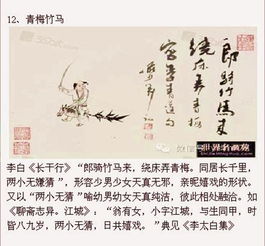 12、青梅竹马
郎骑竹马来
绕床弄青梅
李白《长干行》“郎骑竹马来，绕床弄青梅。同居长干里，
两小无嫌猜”，形容少男少女天真无邪，亲昵嬉戏的形状。
又以“两小无猜”喻幼男幼女天真纯洁，彼此相处融洽。如
《聊斋志异。江城》：“翁有女，小字江城，与生同甲，时
皆八九岁，两小无猜，日共嬉戏。”典见《李太白集》